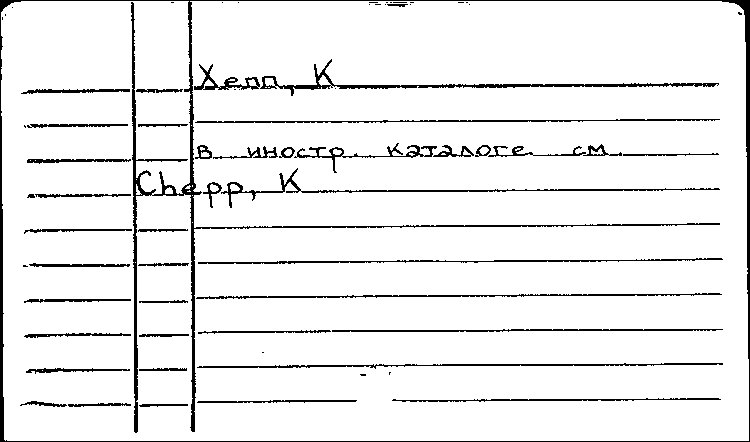 Хепп, К
в иностр. каталоге см.
Chepp, K